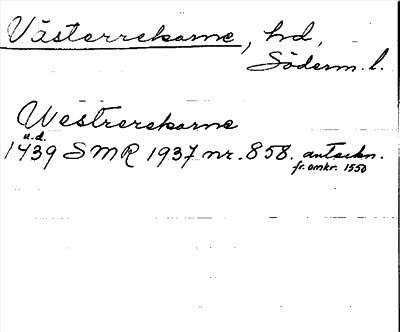 Västerrekarne, hd,
Söderm. l.
Westrerekarne
u.d.
1439 SMR 1937 nr. 858. anteckn.
fr. omkr. 1550